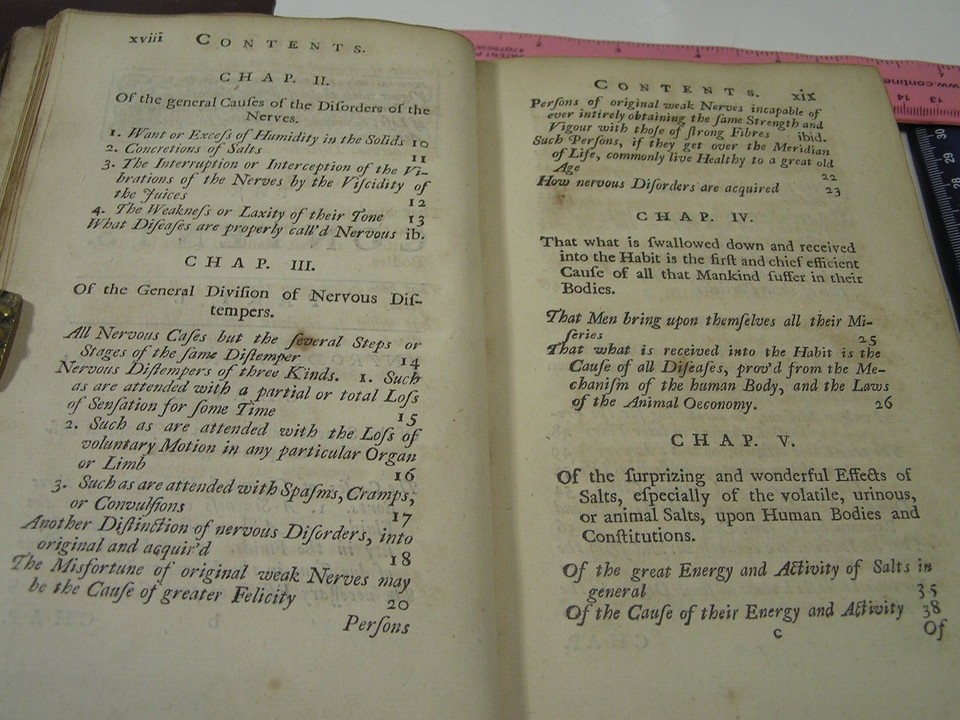 xviii CONTENTS.
CHAP. II.
Of the general Cauſes of the Diſorders of the
Nerves.
1. Want or Exceſs of Humidity in the Solids 10
2. Concretions of Salts 11
3. The Interruption or Interception of the Vi-
brations of the Nerves by the Viſcidity of
the Juices 12
4. The Weakneſs or Laxity of their Tone 13
What Diſeaſes are properly call'd Nervous ib.
CHAP. III.
Of the General Diviſion of Nervous Diſ-
tempers.
All Nervous Caſes but the ſeveral Steps or
Stages of the ſame Diſtemper 14
Nervous Diſtempers of three Kinds. 1. Such
as are attended with a partial or total Loſs
of Senſation for ſome Time 15
2. Such as are attended with the Loſs of
voluntary Motion in any particular Organ
or Limb 16
3. Such as are attended with Spaſms, Cramps,
or Convulſions 17
Another Diſtinction of nervous Diſorders, into
original and acquir'd 18
The Misfortune of original weak Nerves may
be the Cauſe of greater Felicity 20
Perſons
CONTENTS. xix
Perſons of original weak Nerves incapable of
ever intirely obtaining the ſame Strength and
Vigour with thoſe of ſtrong Fibres ibid.
Such Perſons, if they get over the Meridian
of Life, commonly live Healthy to a great old
Age 22
How nervous Diſorders are acquired 23
CHAP. IV.
That what is ſwallowed down and received
into the Habit is the firſt and chief efficient
Cauſe of all that Mankind ſuffer in their
Bodies.
That Men bring upon themſelves all their Mi-
ſeries 25
That what is received into the Habit is the
Cauſe of all Diſeaſes, prov'd from the Me-
chaniſm of the human Body, and the Laws
of the Animal Oeconomy. 26
CHAP. V.
Of the ſurprizing and wonderful Effects of
Salts, eſpecially of the volatile, urinous,
or animal Salts, upon Human Bodies and
Conſtitutions.
Of the great Energy and Activity of Salts in
general 35
Of the Cauſe of their Energy and Activity 38
c Of